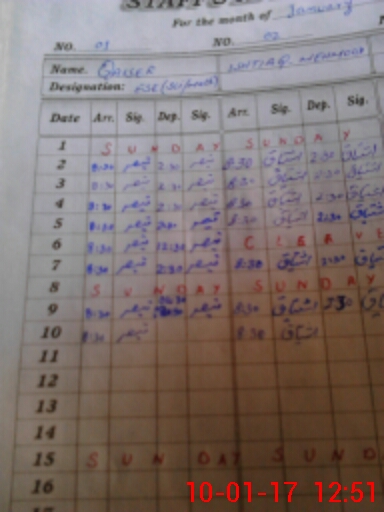 For the month of January
NO. 01 NO. 02
Name. Qaiser
Designation:
Date Arr. Sig. Dep. Sig. Arr. Sig. Dep. Sig.
1 S U N D A Y S U N D A Y
2 8:30 قیصر 2:30 قیصر 8:30 اشتیاق 2:30 اشتیاق
3 8:30 قیصر 2:30 قیصر 8:30 اشتیاق 2:30 اشتیاق
4 8:30 قیصر 2:30 قیصر 8:30 اشتیاق 2:30 اشتیاق
5 8:30 قیصر 2:30 قیصر 8:30 اشتیاق 2:30 اشتیاق
6 8:30 قیصر 12:30 قیصر
7 8:30 قیصر 2:30 قیصر 8:30 اشتیاق 2:30 اشتیاق
8 S U N D A Y S U N D A Y
9 8:30 قیصر قیصر 8:30 اشتیاق 2:30 اشتیاق
10 8:30 قیصر 8:30 اشتیاق
11
12
13
14
15 S U N D A Y S U N D
16
10-01-17 12:51